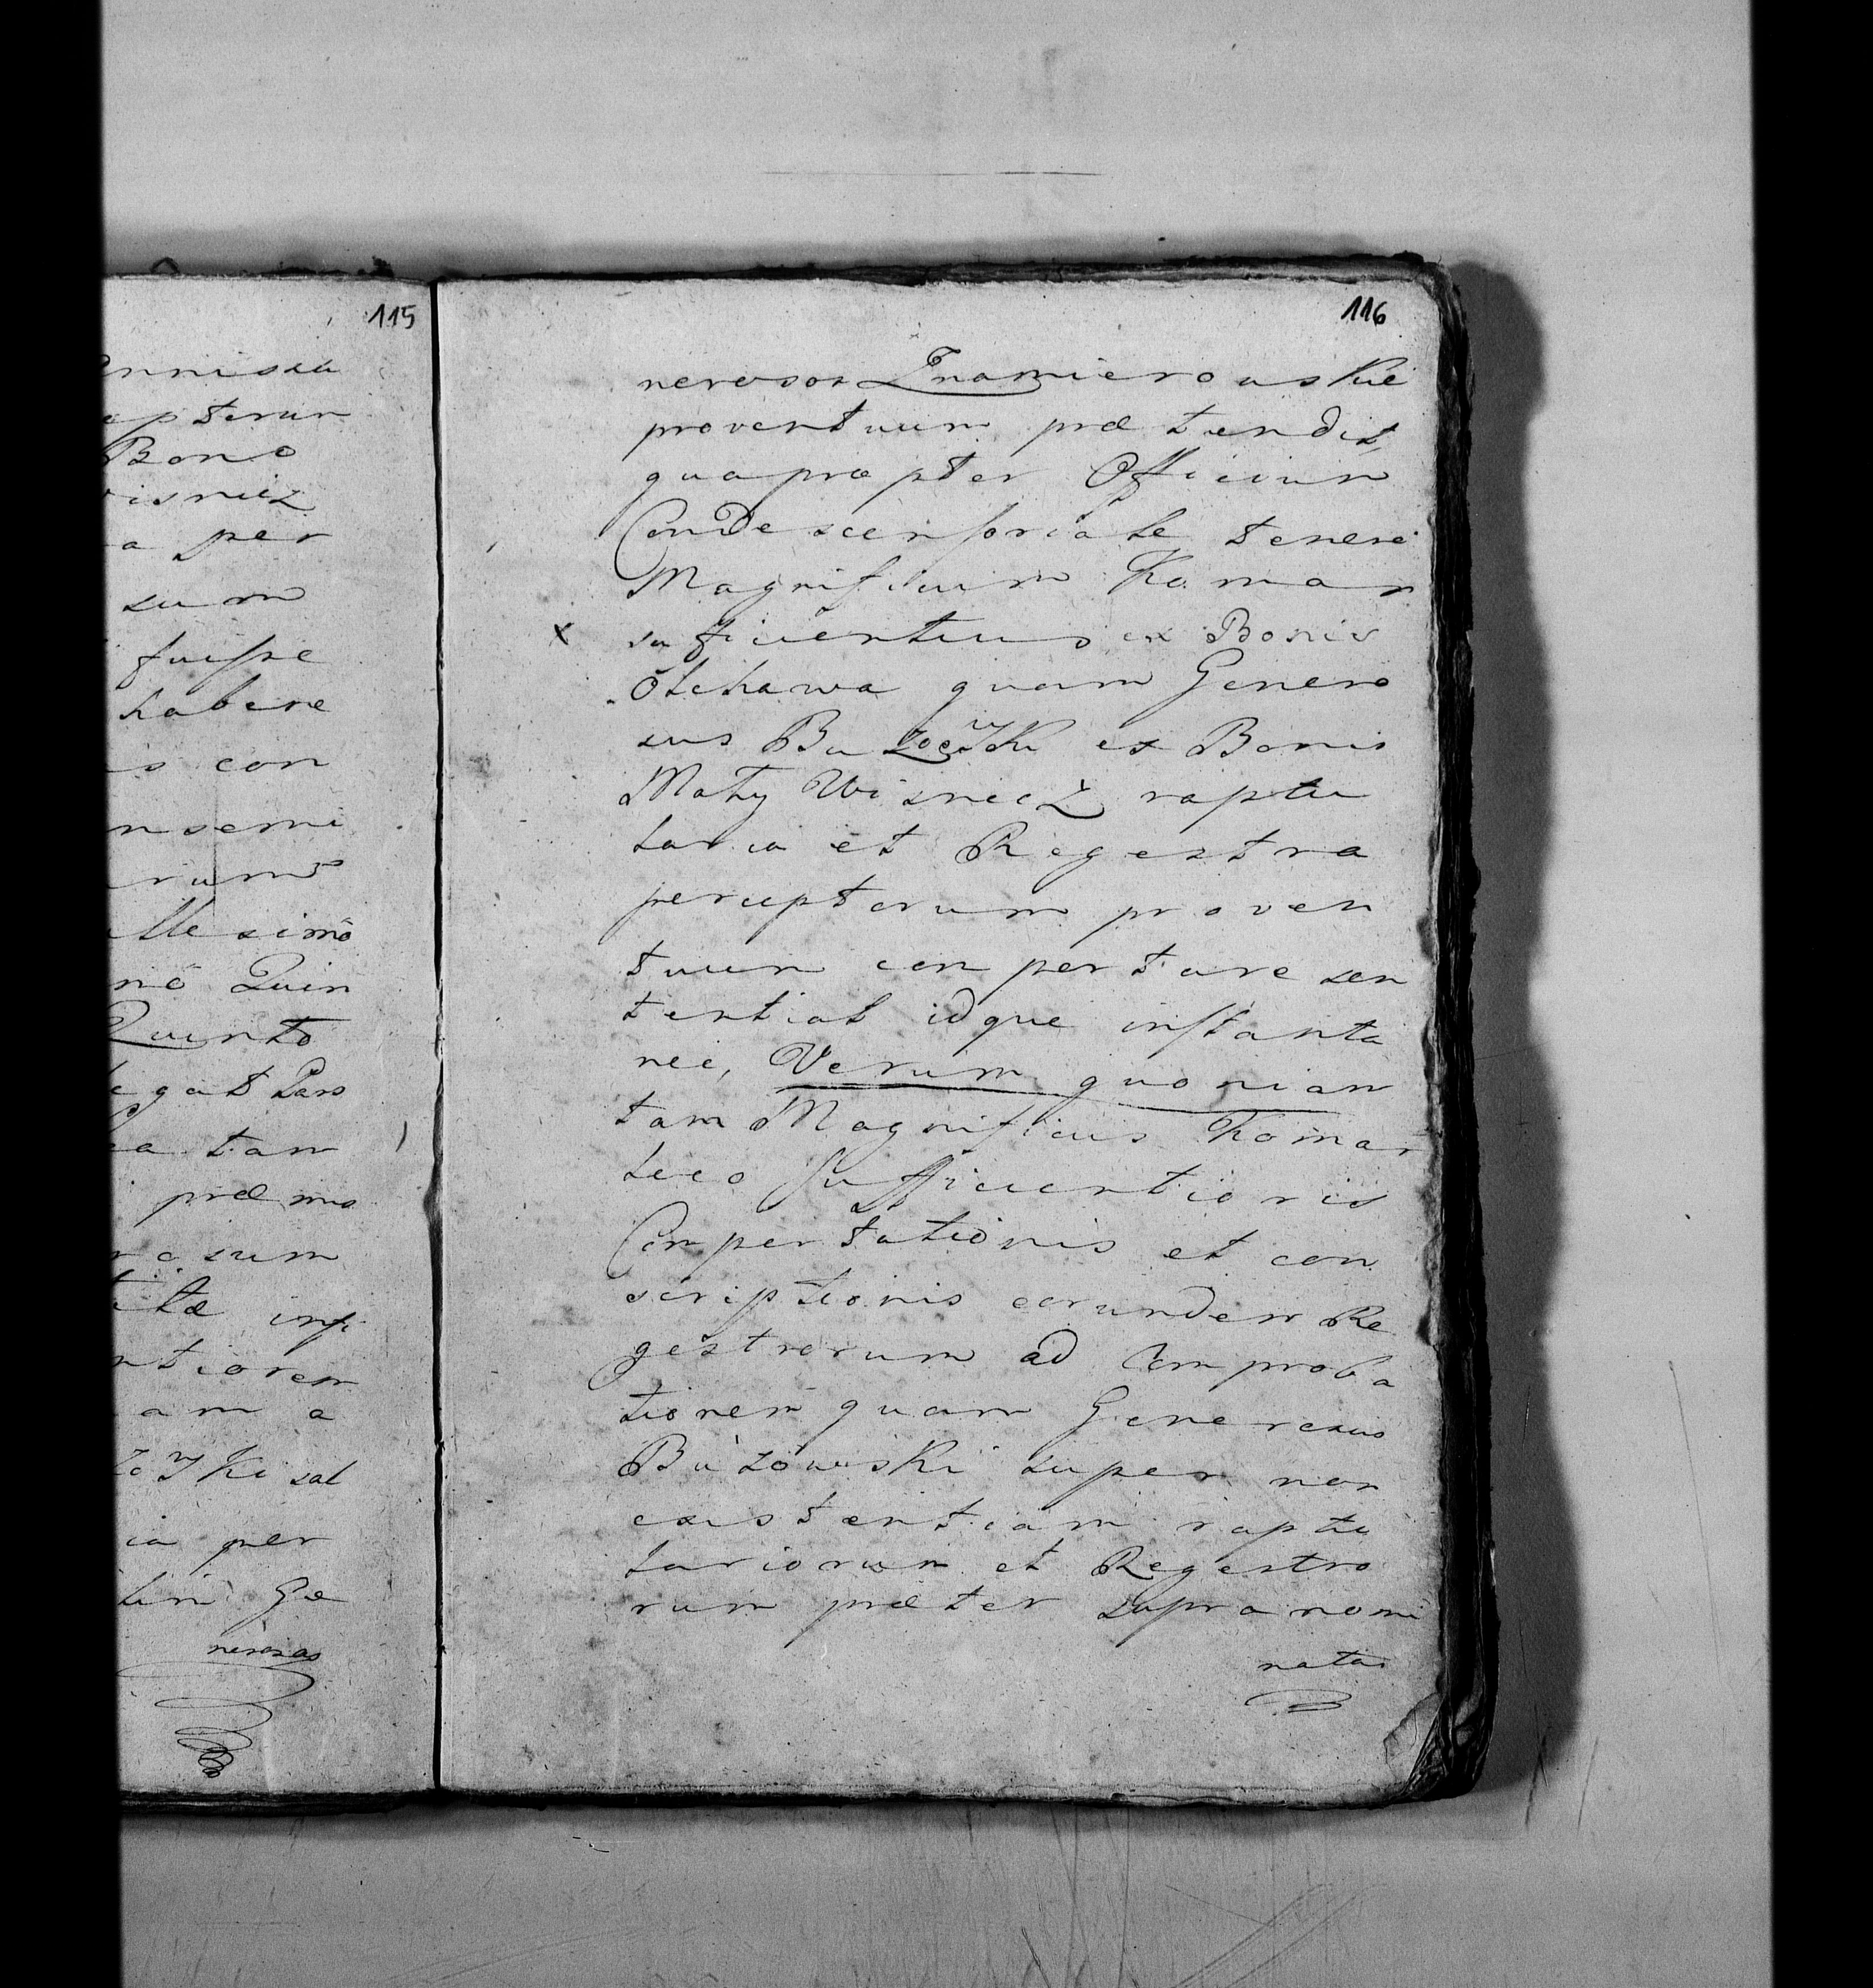 115
ennisia
eptorum
Bono
visnicz
a per
sum
fuisse
habere
is con
nsemi
rum
llesimo
no Quin
Quinto
legat Pars
ea tam
præmis
rosum
tæ insi
ntiorem
am a
zoJKi sal
ia per
tim Ge
nerosos
116
nerosos Znamierouskie
proventuum prætendit,
quapropter Officium
Condescensoriale teneri
Magnificum Komar
x sufficientius ex Bonis
Olchawa quam Genero
sus BuzocJKi ex Bonis
Maty Wisnicz raptu
laria et Regestra
perceptorum proven
tuum conportare sen
tentiat idque instanta
nee, Verum quoniam
tam Magnificus Komar
loco sufficientioris
Comportationis et con
scriptionis eorundem Re
gestrorum ad Comproba
tionem quam Generosus
Buzowski super non
existentiam raptu
lariorum et Regestro
rum præter supranomi
natas